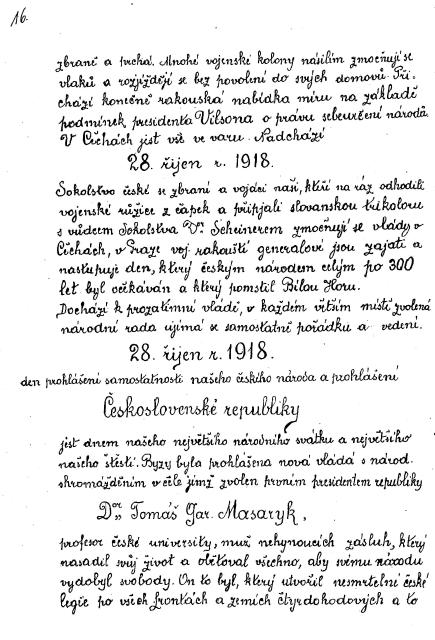 16.
zbraně a prchá. Mnohé vojenské kolony násilím zmocňují se
vlaků a rozjíždějí se bez povolení do svých domovů. Při-
chází konečně rakouská nabídka míru na základě
podmínek presidenta Vilsona o právu sebeurčení národů.
V Čechách jest vše ve varu. Nadchází
28. říjen r. 1918.
Sokolstvo české se zbraní a vojáci naši, kteří na ráz odhodili
vojenské růžice z čapek a připjali slovanskou trikoloru
s vůdcem Sokolstva Dr. Scheinerem zmocňují se vlády v
Čechách, v Praze voj. rakouští generalové jsou zajati a
nastupuje den, který českým národem celým po 300
let byl očkáván a který pomstil Bílou Horu.
Dochází k prozatímní vládě, v každém větším místě zvolená
národní rada ujímá se samostatně pořádku a vedení.
28. říjen r. 1918.
den prohlášení samostatnosti našeho českého národa a prohlášení
Československé republiky
jest dnem našeho největšího národního svátku a největšího
našeho štěstí. Brzy byla prohlášena nová vláda s národ.
shromážděním v čele jímž zvolen prvním presidentem republiky
Dor. Tomáš Gar. Masaryk,
profesor české university, muž nehynoucích zásluh, který
nasadil svůj život a obětoval všechno, aby svému národu
vydobyl svobody. On to byl, který utvořil nesmrtelné české
legie po všech frontách a zemích čtyrdohodových a to